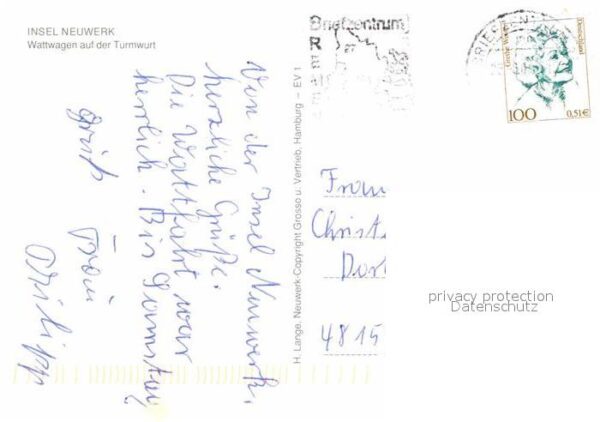 INSEL NEUWERK
Wattwagen auf der Turmwurt
Von der Insel Neuwerk,
herzliche Grüße.
Die Wattfahrt war
herrlich. Bis Samstag,
Gruß
H. Lange, Neuwerk-Copyright Grosso u. Vertrieb, Hamburg – EV 1
Briefzentrum
R
BRIEFZENT
Große
Deutschland
100
0,51€
Frau
Christ
Dor
4815
privacy protection
Datenschutz